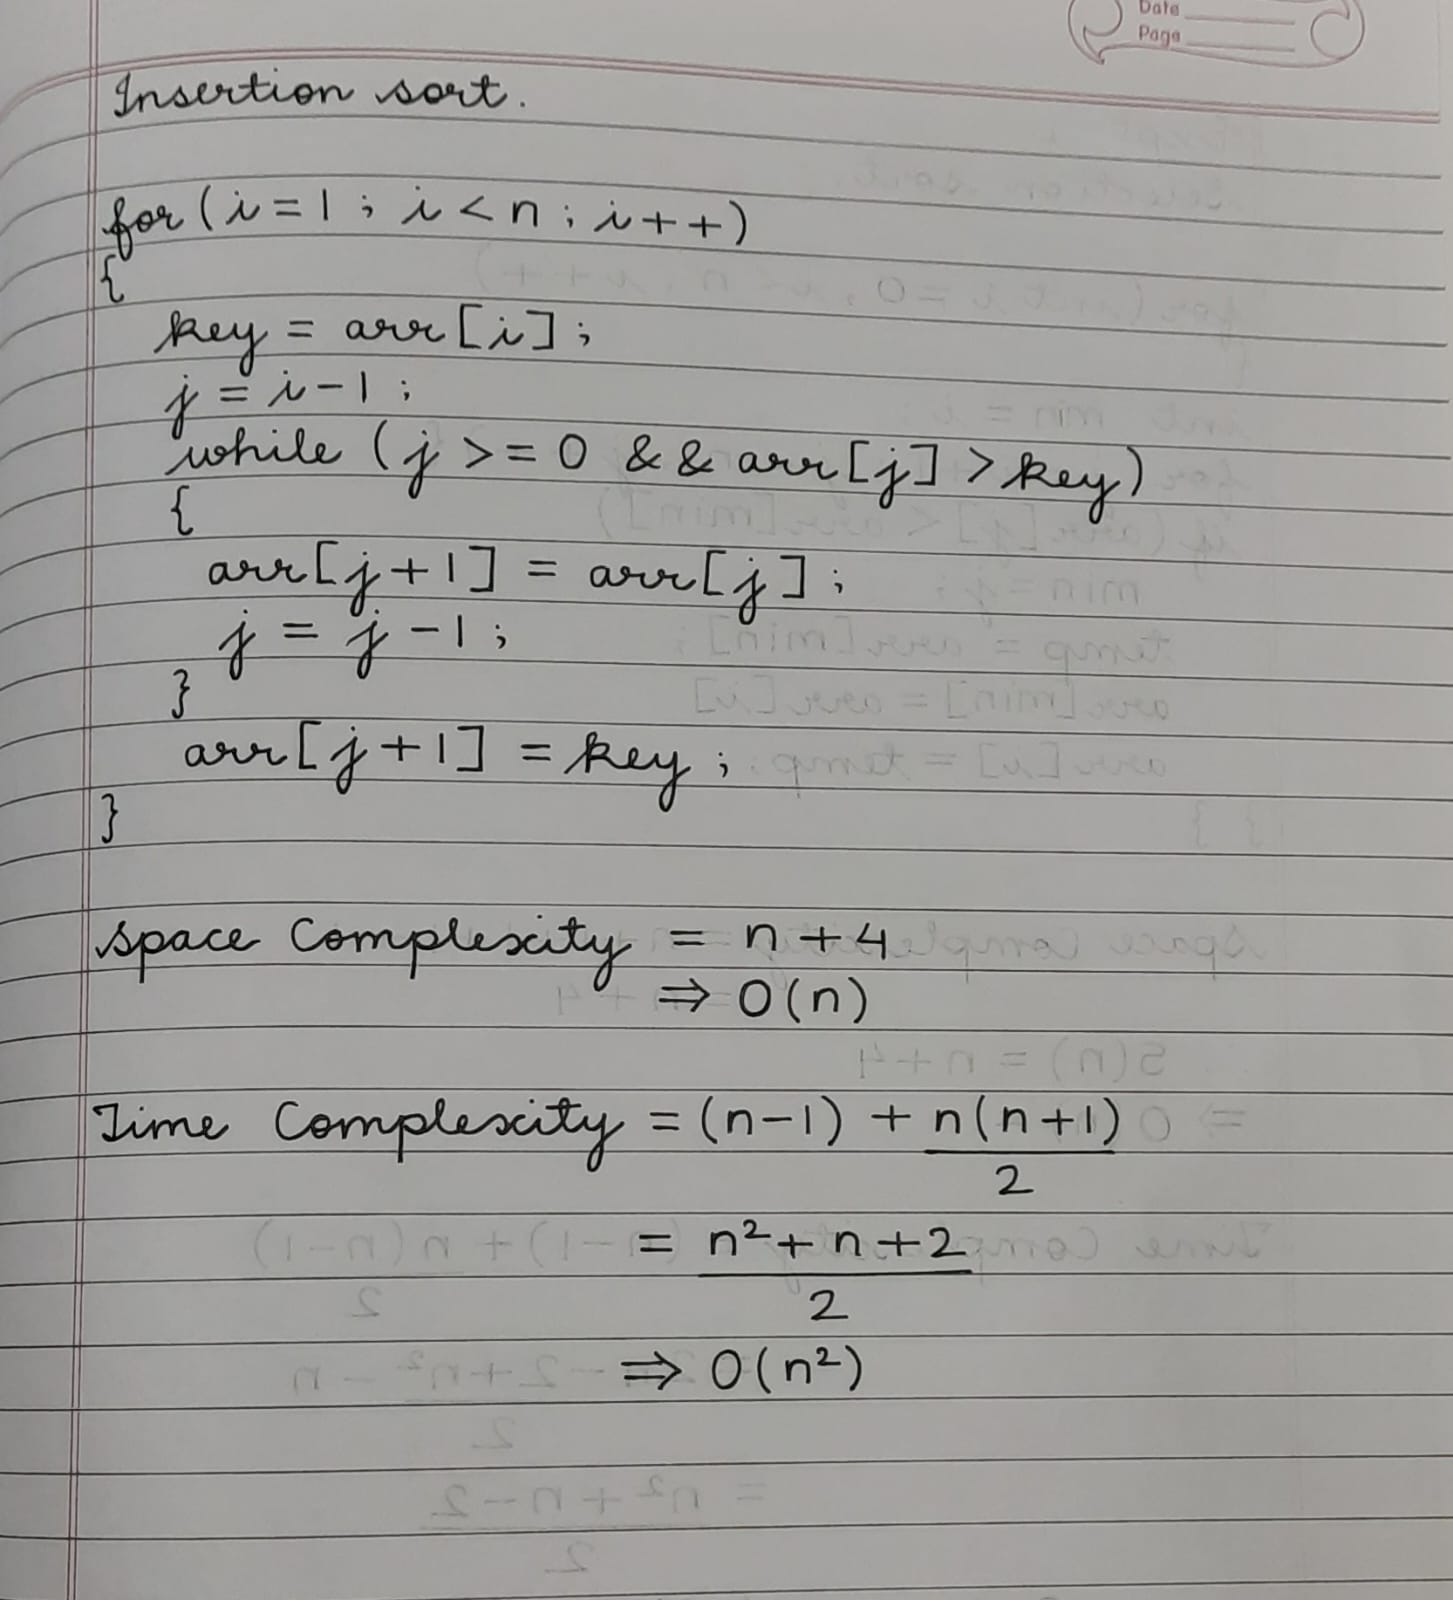 Date
Page
Insertion sort.
for (i=1; i<n; i++)
{
key = arr[i];
j = i-1;
while (j >= 0 && arr[j] > key)
{
arr[j+1] = arr[j];
j = j-1;
}
arr[j+1] = key;
}
Space Complexity = n+4
⇒ O(n)
Time Complexity = (n-1) + n(n+1)
2
= n²+n+2
2
⇒ O(n²)